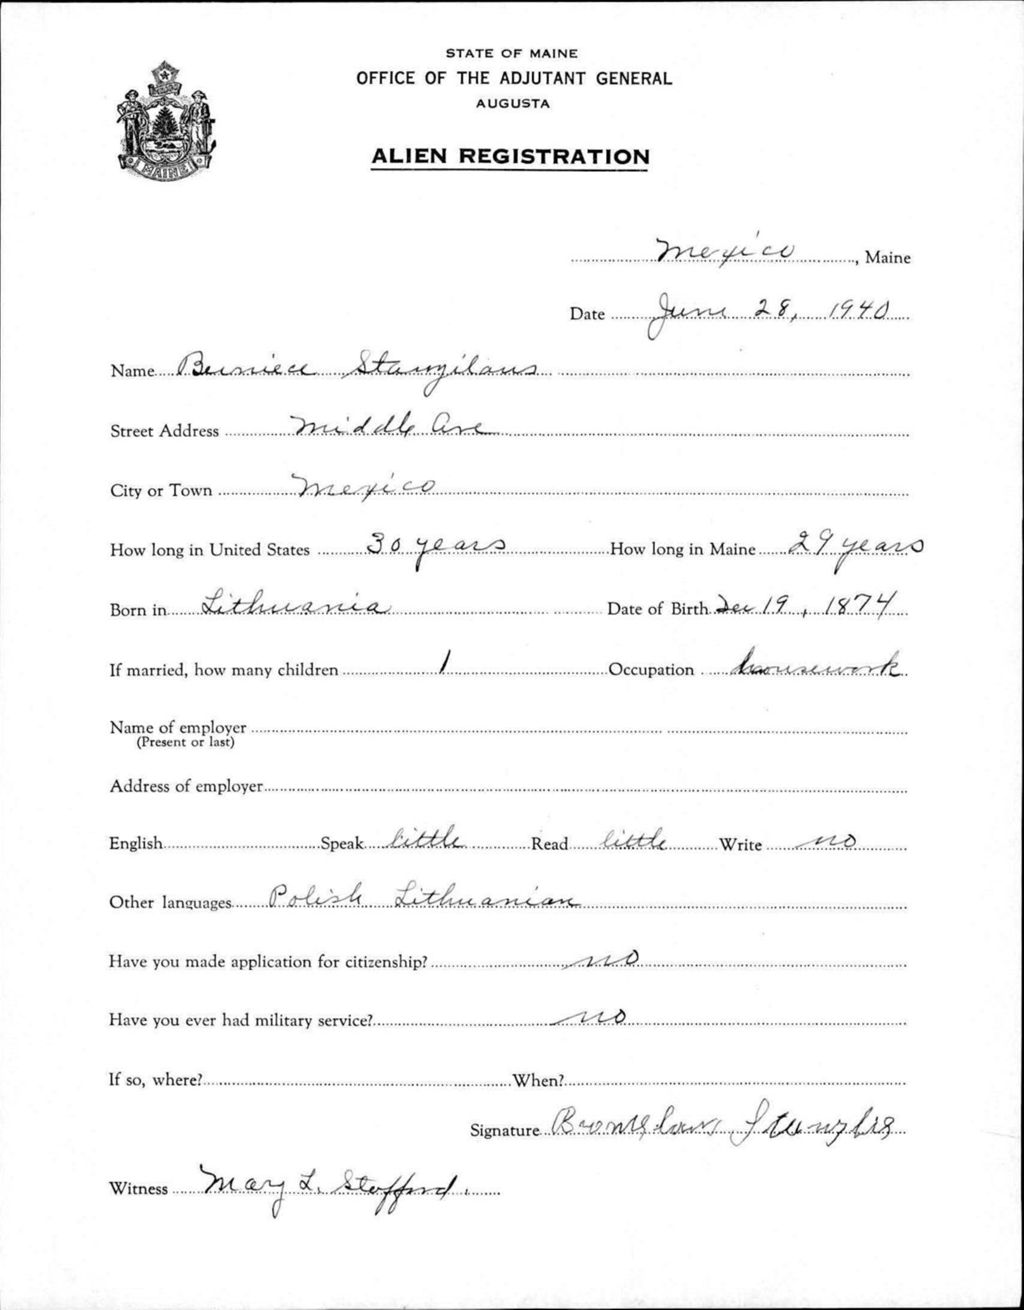 STATE OF MAINE
OFFICE OF THE ADJUTANT GENERAL
AUGUSTA
ALIEN REGISTRATION
MAINE
Mexico, Maine
Date June 28, 1940
Name Berniece Stanzilaus
Street Address Middle Ave
City or Town Mexico
How long in United States 30 years How long in Maine 29 years
Born in Lithuania Date of Birth Dec 19, 1874
If married, how many children 1 Occupation housework
Name of employer
(Present or last)
Address of employer
English Speak little Read little Write no
Other languages Polish Lithuanian
Have you made application for citizenship? no
Have you ever had military service? no
If so, where? When?
Signature
Witness Mary L. Stofford.